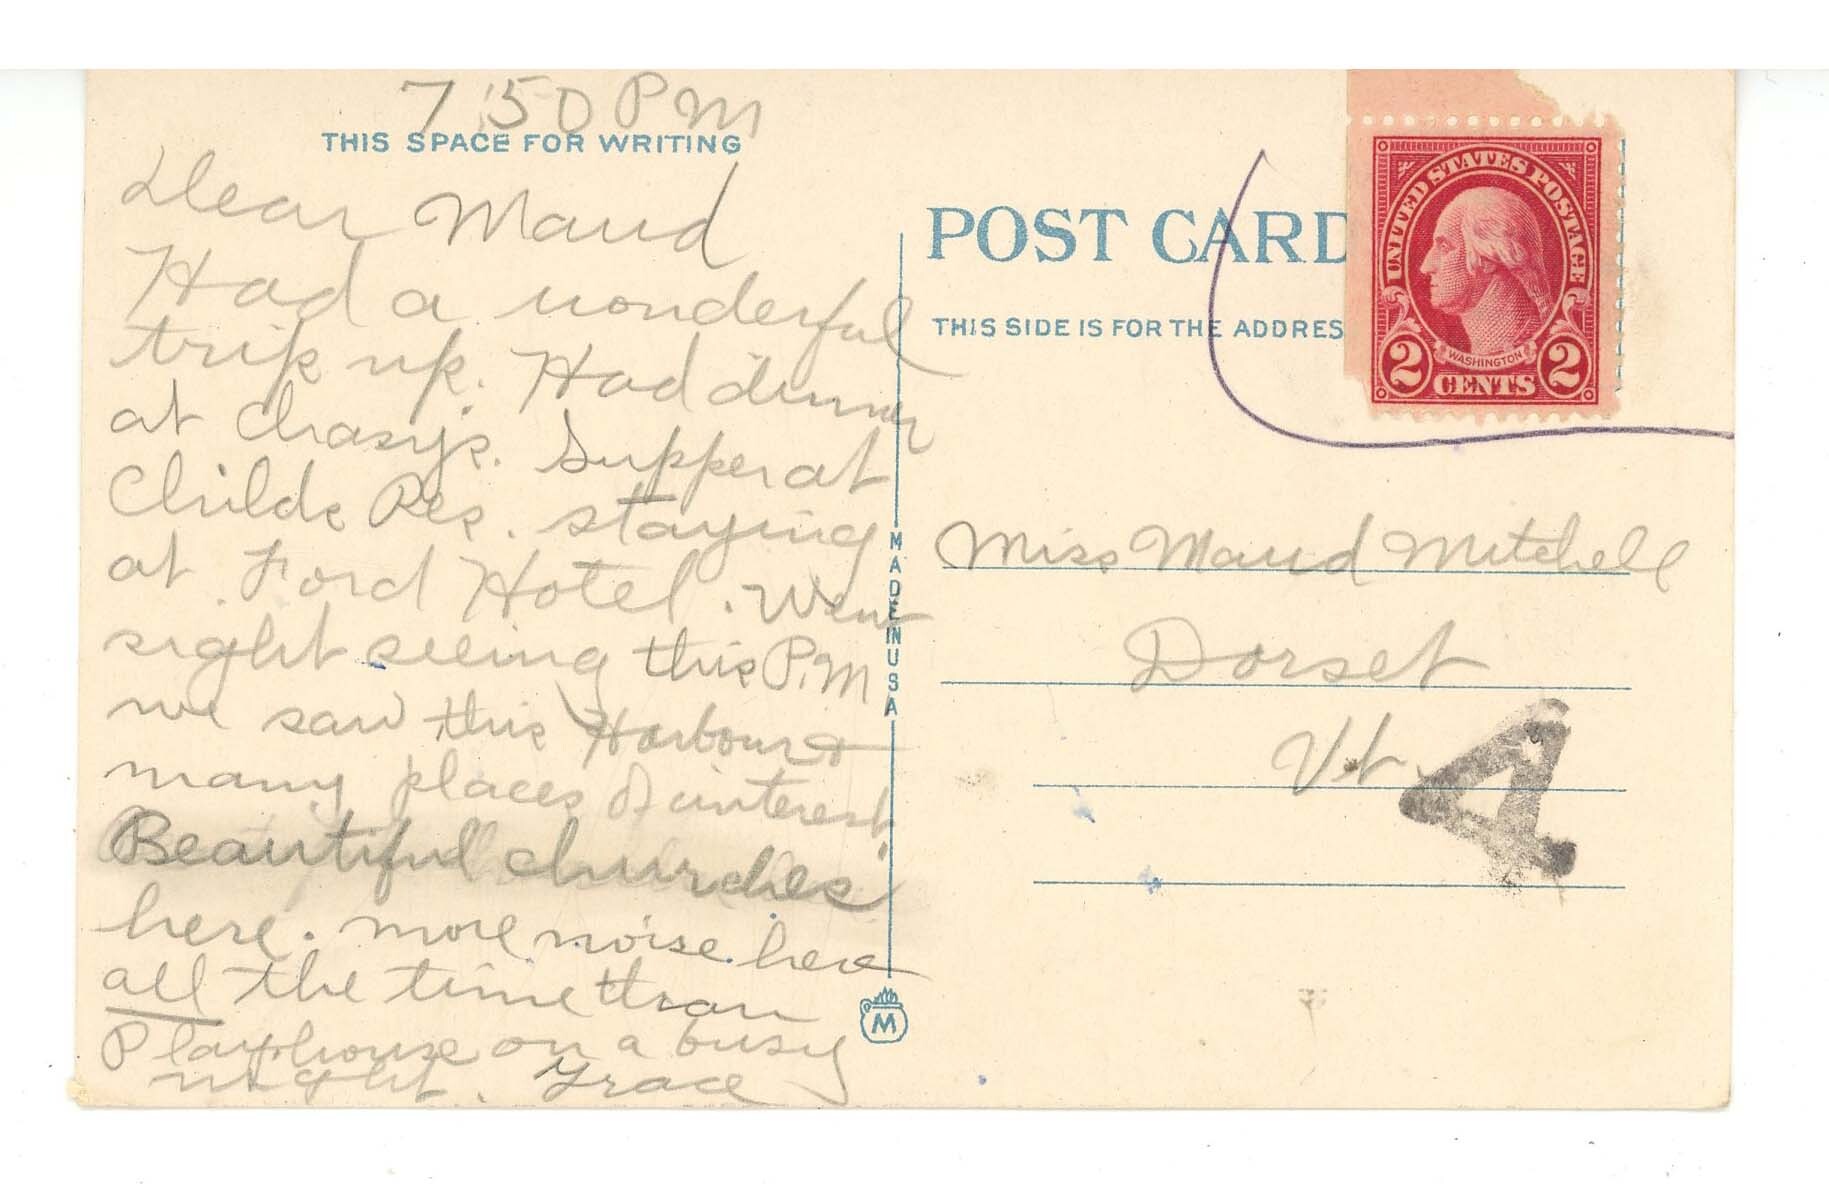 7:50 PM
THIS SPACE FOR WRITING
Dear Maud
Had a wonderful
trip up. Had dinner
at Chasy's. Supper at
Childs Res. staying
at Ford Hotel. Went
sight seeing this P.M
we saw this Harbour &
many places of interest
Beautiful churches
here. more noise here
all the time than
Playhouse on a busy
night. Grace
MADE IN USA
M
POST CARD
THIS SIDE IS FOR THE ADDRES
UNITED STATES POSTAGE
WASHINGTON
2 CENTS 2
Miss Maud Mitchell
Dorset
Vt.